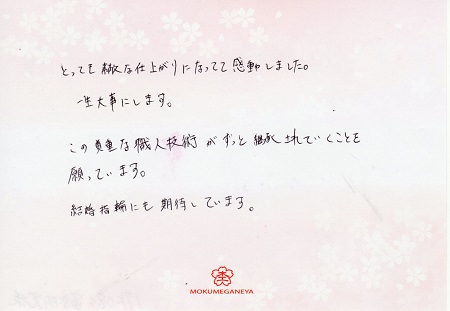 とっても素敵な仕上がりになってて感動しました。
一生大事にします。
この貴重な職人技術がずっと継承されていくことを
願っています。
結婚指輪にも期待しています。
MOKUMEGANEYA